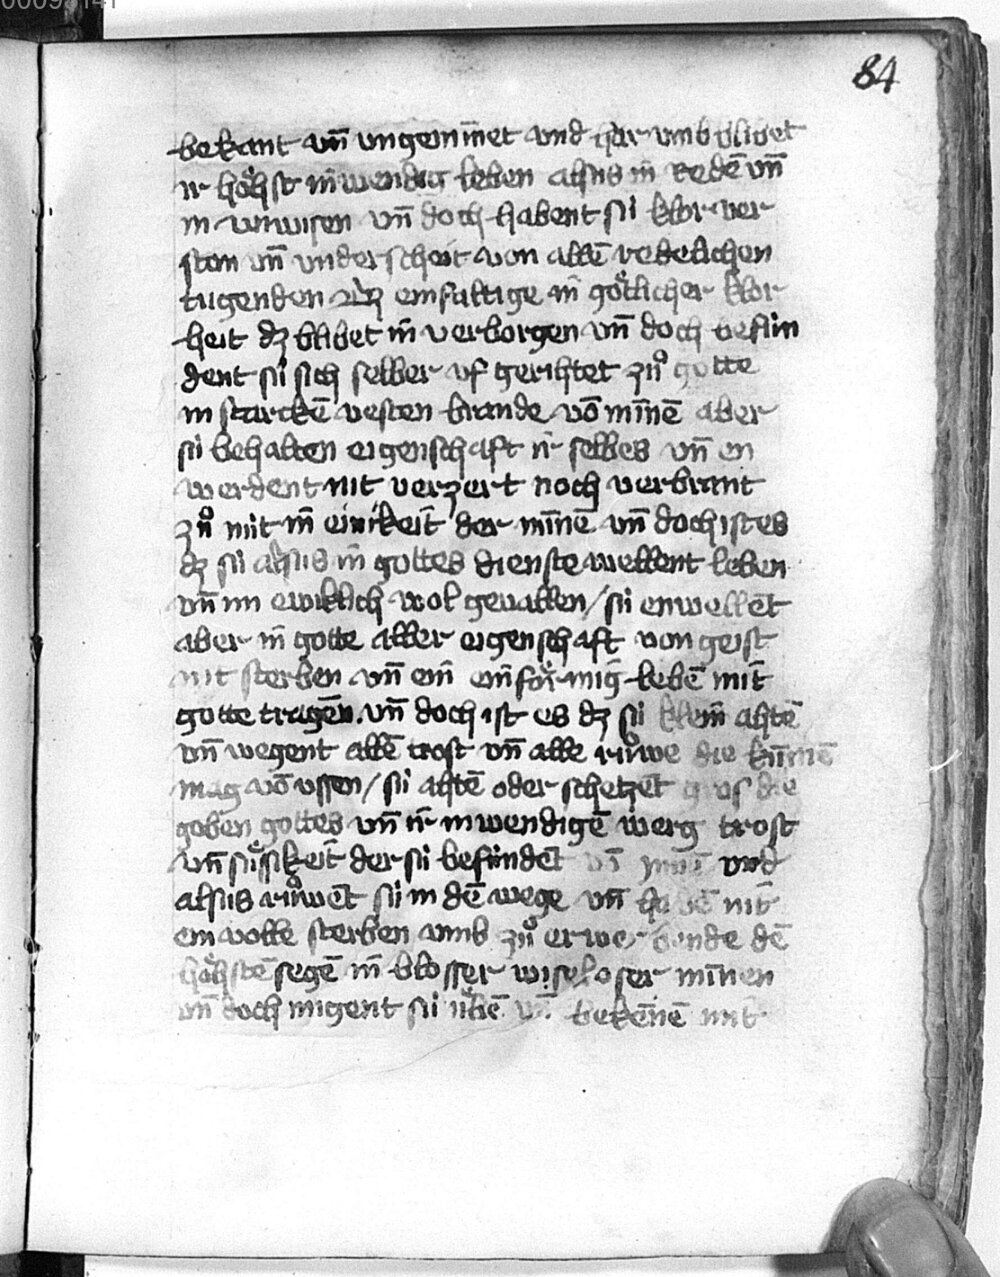 84
bekant vn̄ vngemīnet vnd dar vmb blibet
ir hoͤhst inwendig leben alsus in redē vn̄
in vnwisen vn̄ doch habent sii klor ver
ston vn̄ vnderscheit von allē redelichen
tugenden einfaltige in goͤtlicher klor
heit dz blibet in verborgen vn̄ doch befiin
dent sii sich selber vf gerihtet zuͦ gotte
in starckē vesten brande vō mīnē aber
sii behalten eigenschaft ir selbes vn̄ en
werdent nit verzert noch verbrant
zuͦ nut in einikeit der mīnē vn̄ doch ist es
dz sii alsus in gottes dienste wellent leben
vn̄ im ewiklich wol geuallen / sii enwellēt
aber in gotte aller eigenschaft von geist
nit sterben vn̄ ein einfoͤrmig lebē mit
gotte tragēn. vn̄ doch ist es dz sii klein ahtē
vn̄ wegent allē trost vn̄ alle ruͦwe die kum̄ē
mag vō vssen / sii ahtē oder schetzēt gros die
goben gottes vn̄ ir inwendigē werg trost
vn̄ suͤssikeit der sii befindēt vnd
alsus ruͦwēt sii in dē wege vn̄ nit
ein volle sterben vmb zuͦ erwerbende dē
hoͤhstē segē in blosser wiseloser mīnen
vn̄ doch migent sii vn̄ bekēnē mit